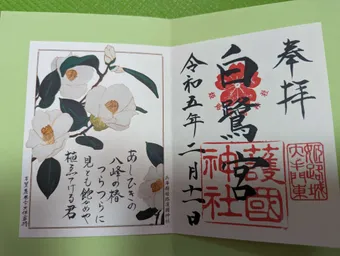 奉拝
姫路城
大手門東
白鷺宮
護國
神社
令和五年二月十一日
あしびきの
八峰の椿
つらつらに
見とも飽かめや
植ゑてける君